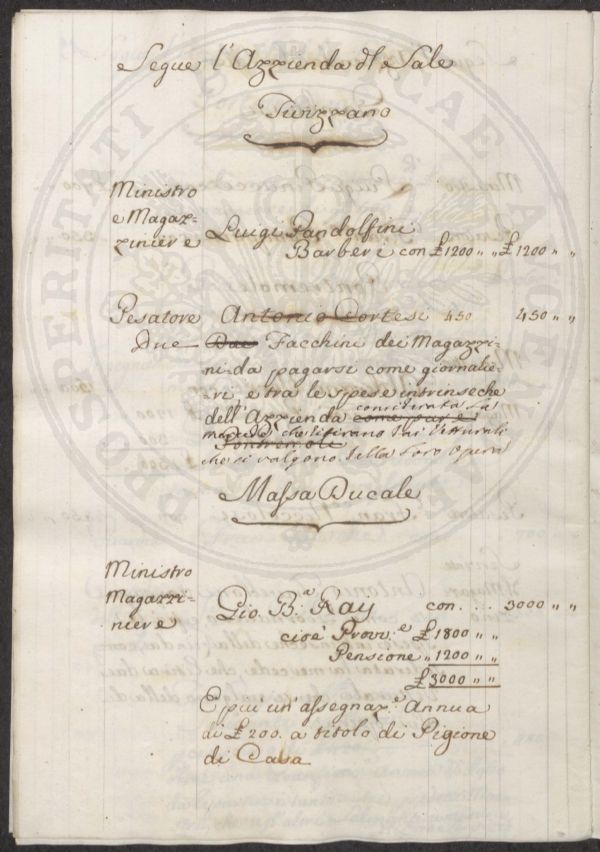 Segue l'Azzienda dl Sale
Tivizzano
Ministro
e Magaz-
ziniere
Luigi Pandolfini
Barberi con £ 1200 " " £ 1200 " "
Pesatore Antonio Cortesi 450 450 " "
Due Due Facchini dei Magazzi-
ni da pagarsi come giornalie-
ri, e tra le spese intrinseche
dell'Azzienda come par e
considerata la
mercede che litirano dai Vetturali
Pontremoli
che si valgono della loro Opera
Massa Ducale
Ministro
Magazzi-
niere
Gio. B.a Ray con ... 3000 " "
cioè Provv.e £ 1800 " "
Pensione " 1200 " "
£ 3000 " "
E piu' un'assegnaz.e Annua
di £ 200. a titolo di Pigione
di Casa
PROSPERITATI PUBLICAE AUGENDAE